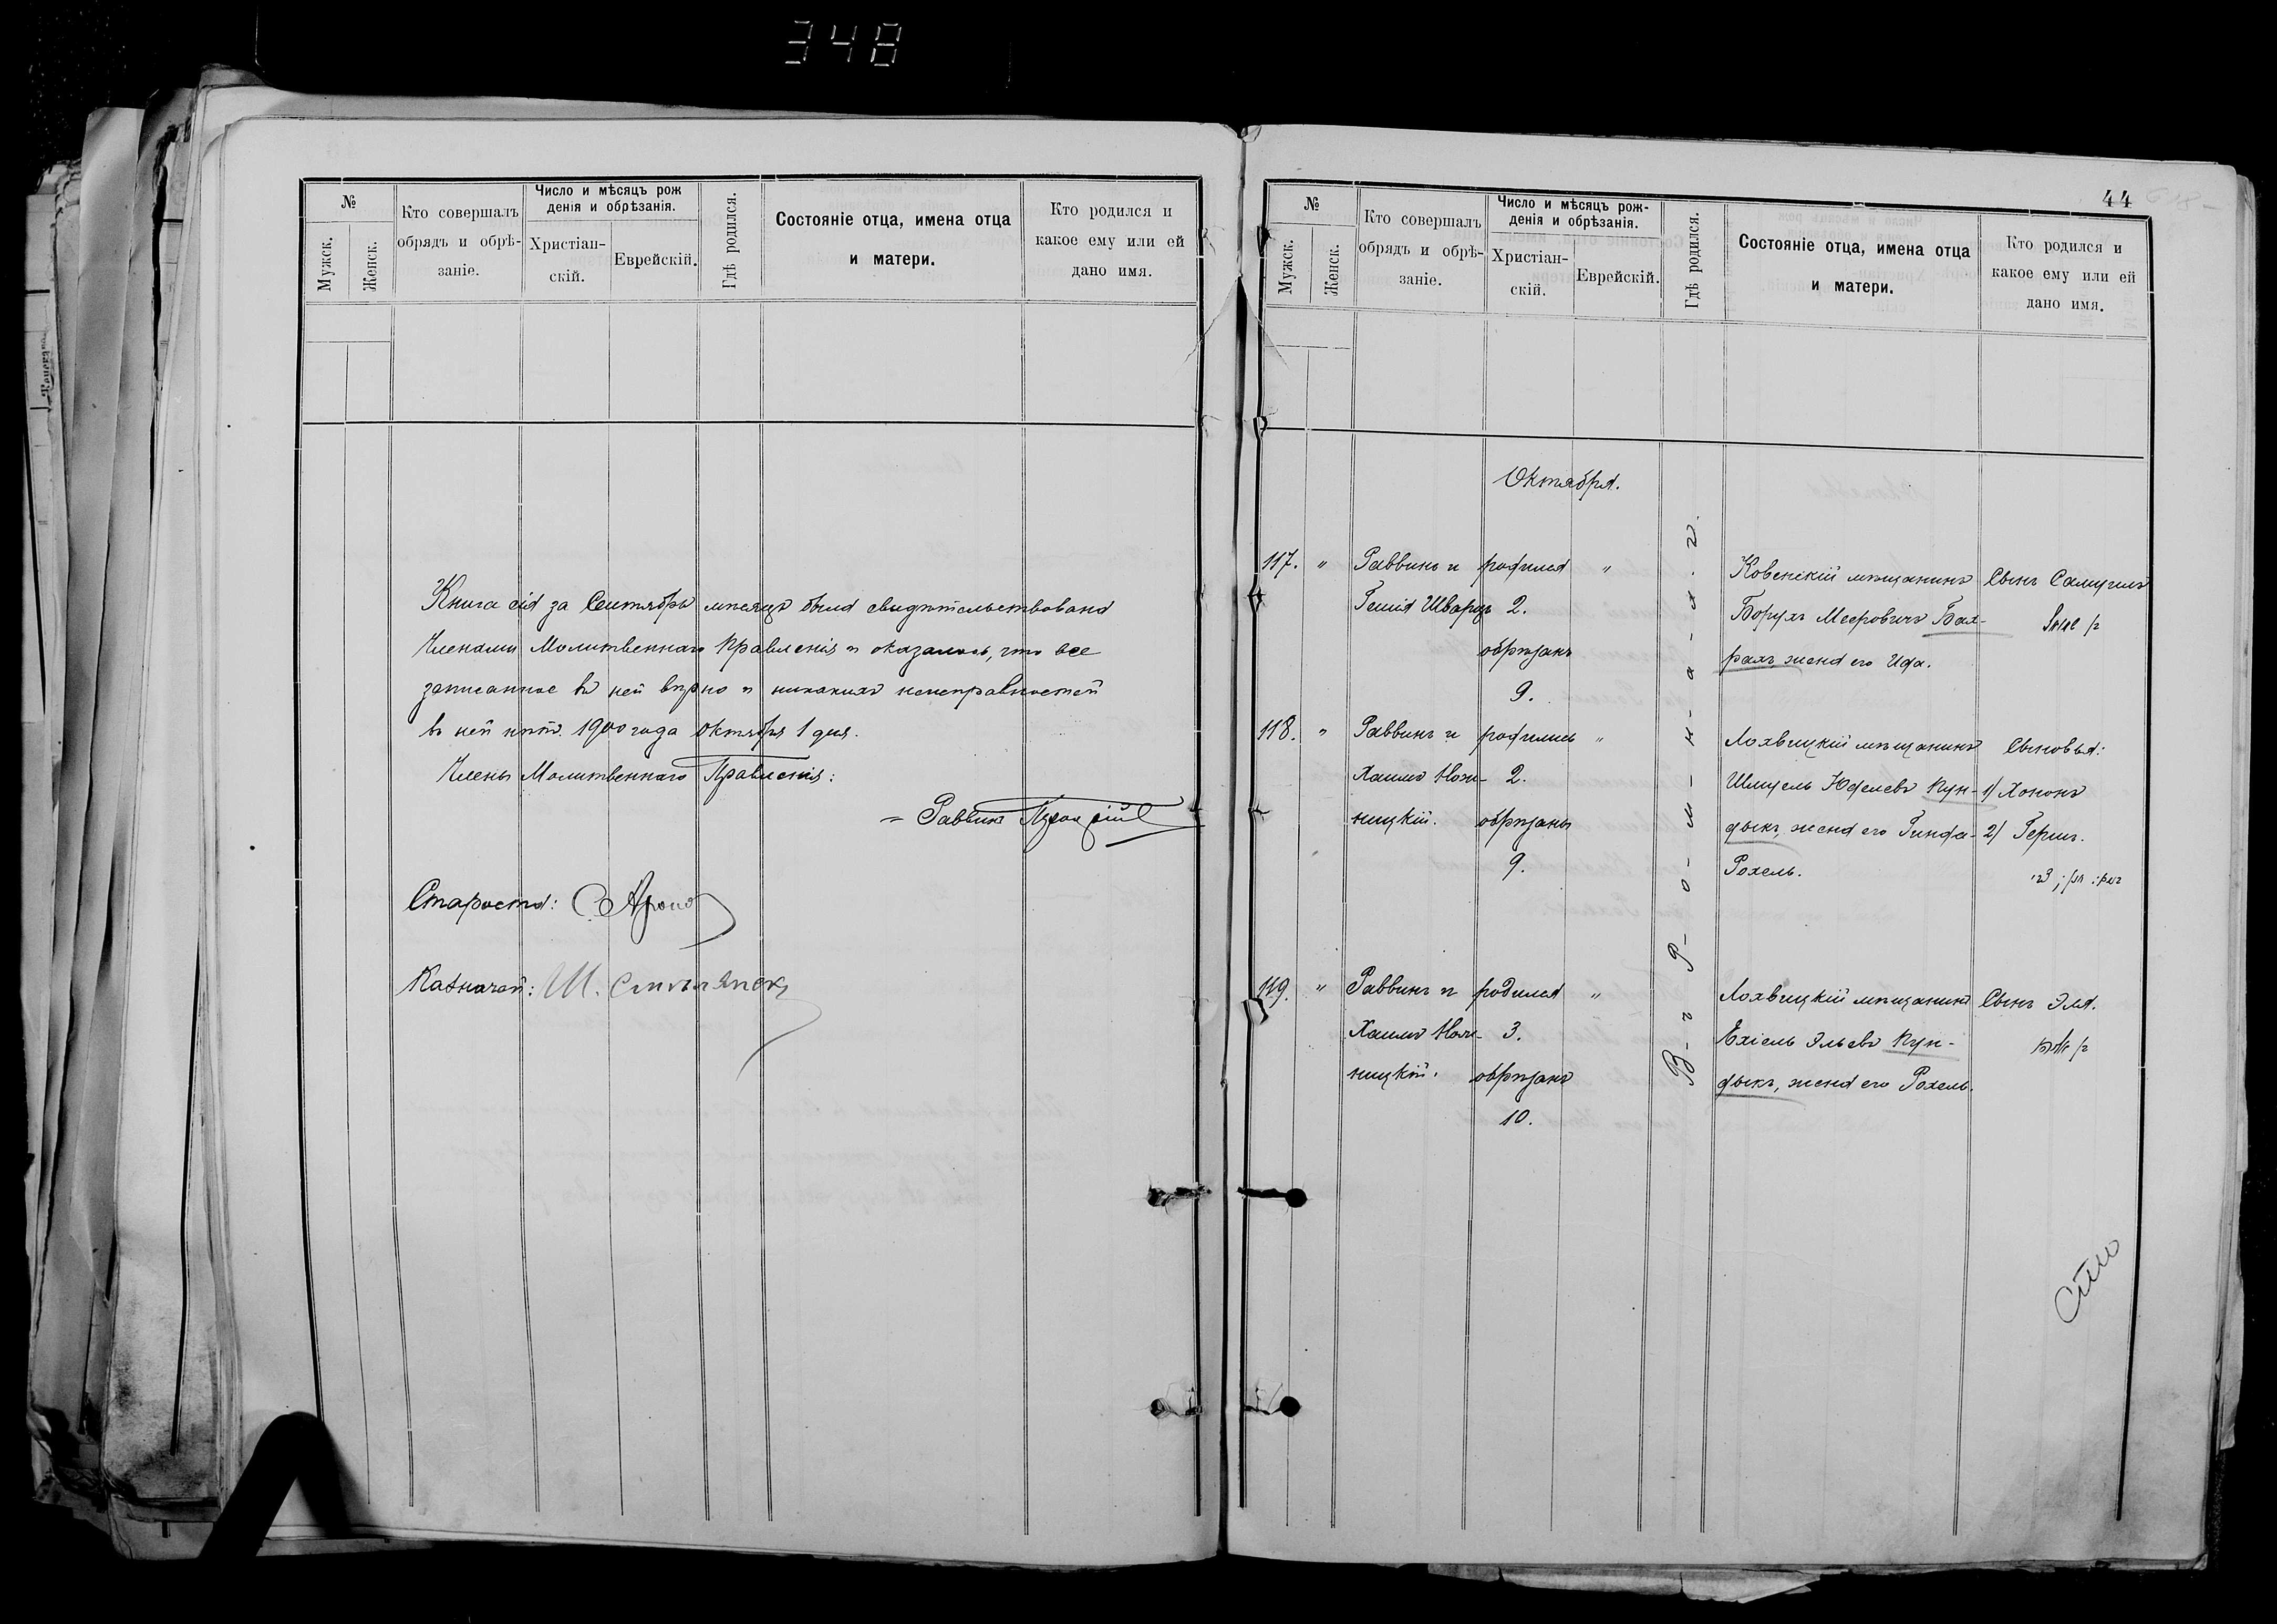 348
№
Мужск.
Женск.
Кто совершалъ
обрядъ и обрѣ-
заніе.
Число и мѣсяцъ рож
денія и обрѣзанія.
Христіан-
скій.
Еврейскій.
Гдѣ родился.
Состояніе отца, имена отца
и матери.
Кто родился и
какое ему или ей
дано имя.
Книга сія за Сентябрь мѣсяцъ была свидѣтельствована
Членами Молитвеннаго Правленія и оказалось, что все
записанное въ ней вѣрно и никакихъ неисправностей
въ ней нѣтъ. 1900 года Октября 1 дня.
Члены Молитвеннаго Правленія:
Раввинъ
Староста:
Казначей: Ш.
44
№
Мужск.
Женск.
Кто совершалъ
обрядъ и обрѣ-
заніе.
Число и мѣсяцъ рож-
денія и обрѣзанія.
Христіан-
скій.
Еврейскій.
Гдѣ родился.
Состояніе отца, имена отца
и матери.
Кто родился и
какое ему или ей
дано имя.
Октября.
В-ъ Р-о-м-н-а-х-ъ.
117. " Раввинъ и родился " Ковенскій мѣщанинъ Сынъ Самуилъ
Гешія Шварцъ 2. Борухъ Мееровичъ Бах-
обрѣзанъ рахъ, жена его Ида.
9.
118. " Раввинъ и родились " Лохвицкій мѣщанинъ Сыновья:
Хаимъ Нож- 2. Шмуель Юделевъ Кун- 1) Хононъ
ницкій. обрѣзаны дыкъ, жена его Гинда- 2) Гершъ.
9. Рохель.
119. " Раввинъ и родился " Лохвицкій мѣщанинъ Сынъ Эля.
Хаимъ Нож- 3. Ехіель Эльевъ Кун-
ницкій. обрѣзанъ дыкъ, жена его Рохель.
10.